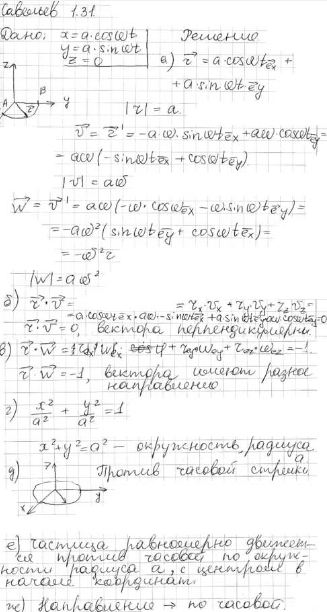 Савельев 1.31
Дано: x=a·cosωt
y=a·sinωt
z=0
Решение
а) r⃗ = a·cosωt e⃗x +
+ a·sinωt e⃗y
z
A B y
|r| = a
v⃗ = r⃗' = -a·ω·sinωt e⃗x + aω cosωt e⃗y =
= aω(-sinωt e⃗x + cosωt e⃗y)
|v| = aω
w⃗ = v⃗' = aω(-ω·cosωt e⃗x - ω·sinωt e⃗y) =
= -aω²(sinωt e⃗y + cosωt e⃗x) =
= -ω² r
|w| = aω²
б) r⃗·v⃗ = = rx·vx + ry·vy + rz·vz =
r⃗·v⃗ = 0, вектора перпендикулярны.
в) r⃗·w⃗ = + ry·wy + rz·wz = -1
r⃗·w⃗ = -1, вектора имеют разное
направлению
г) x²/a² + y²/a² = 1
x²+y² = a² – окружность, радиуса
a
д) Против часовой стрелки
z
x y
е) Частица равномерно движет-
ся против часовой по окруж-
ности радиуса a, с центром в
начале координат.
ж) Направление → по часовой.